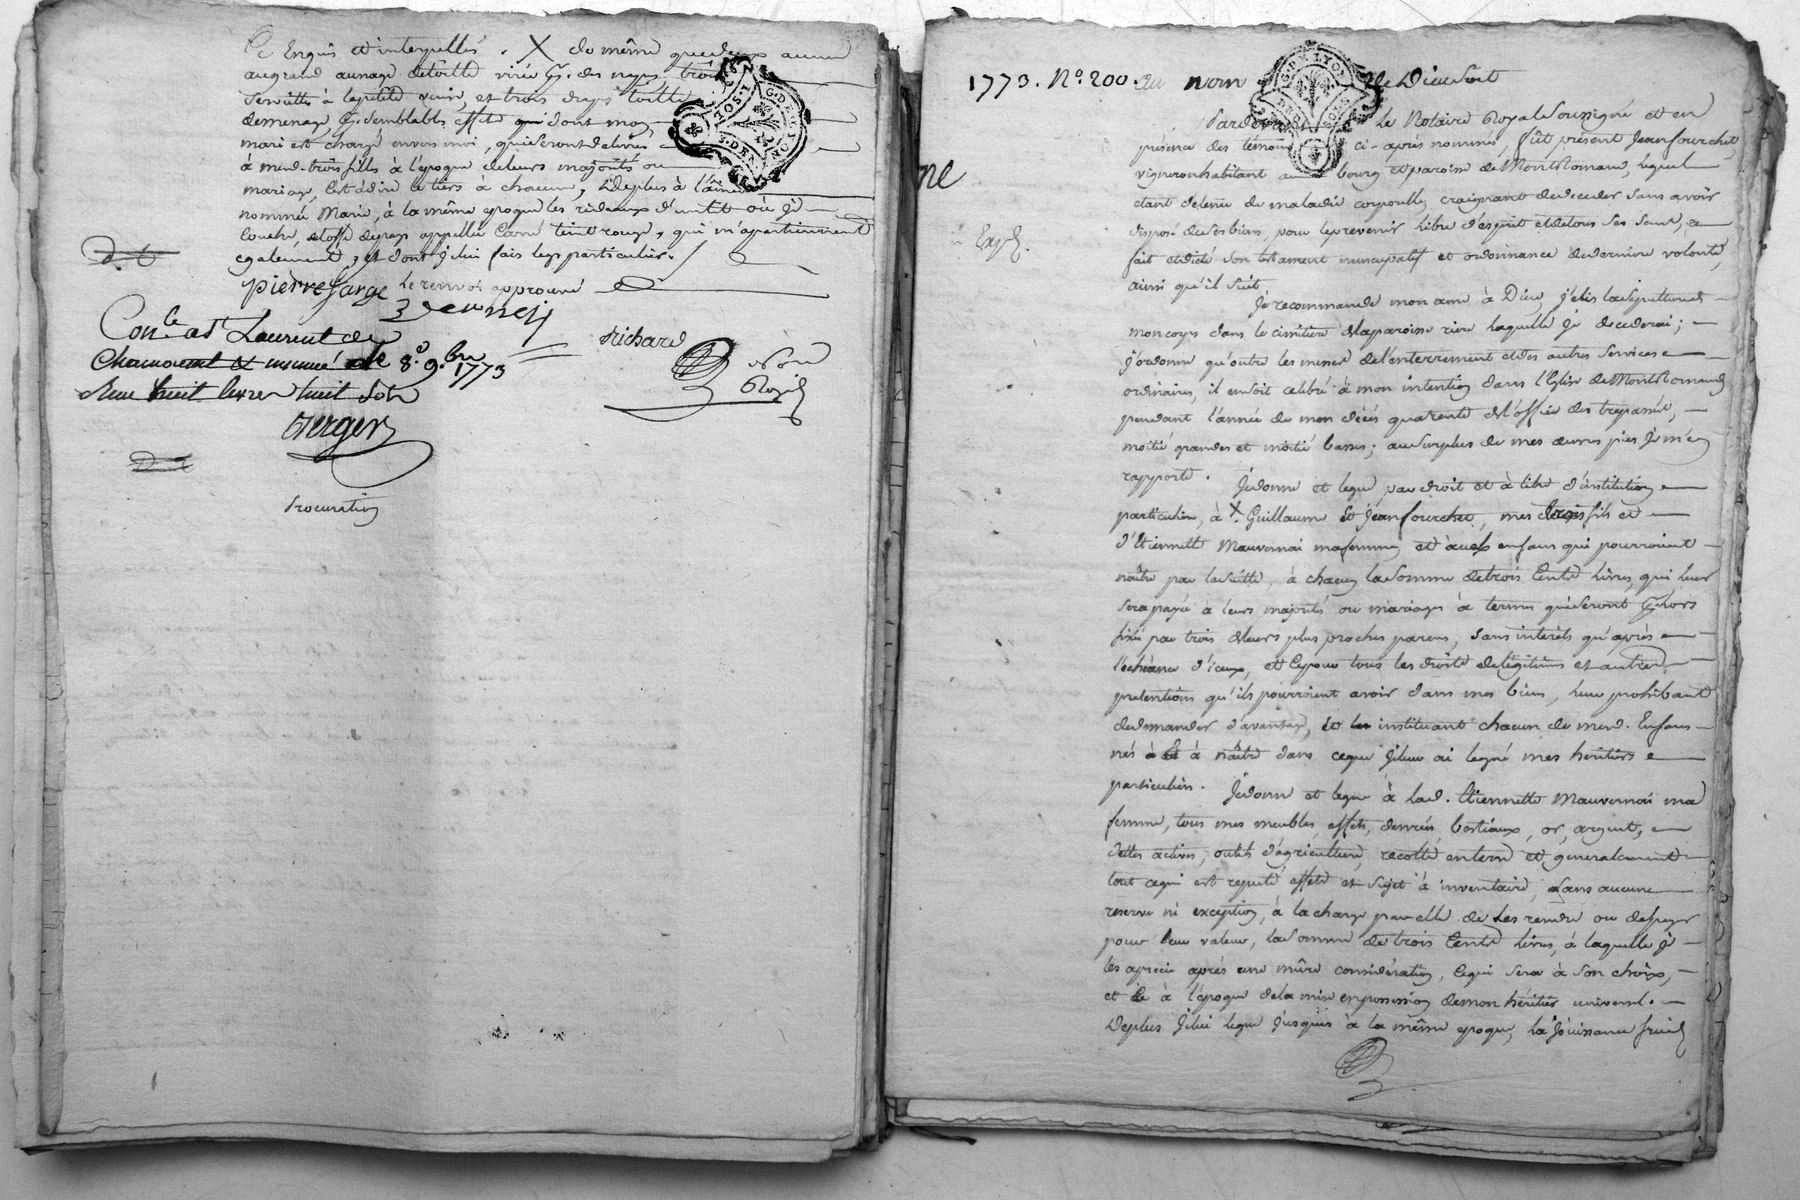 Enquis et interpellés. X de même que deux aunes
au grand aunage de toille
serviettes à la petite venise, et trois draps toille
de menage, semblables effets dont mon
mari est chargé envers moi, qui seront delivrés
à mesd. trois filles à l'époque de leurs majorités ou
mariages, c'est à dire le tiers à chacune, De plus à l'ainée
nommée Marie, à la même epoque les rideaux d'un lit où je
couche, etoffe de pays appellée teint rouge, qui m'apartiennent
egalement, et dont je lui fais legs particulier.
pierre farge le renvoi approuvé
Con.le a St Laurent de
Chamousset le 8.e 9.bre 1773
Reçu huit livres huit sols
Richard
No.re
Royal
Berger
Procuration
1773. N.o 200. Au nom de Dieu soit
Pardevant Le Notaire Royal soussigné et en
présence des témoins ci-après nommés, fût présent Jean fourchet,
vigneron habitant au bourg et paroisse de Montromand, lequel
étant detenu de maladie corporelle, craignant de deceder sans avoir
disposé de ses biens, pour le prevenir libre d'esprit et de tous ses sens, a
fait et dicté son testament nuncupatif et ordonnance de derniere volonté,
ainsi qu'il suit
Exp.
Je recommande mon ame à Dieu, j'elis la sepulture de
mon corps dans le cimitiere de la paroisse riere laquelle je decederai;
j'ordonne qu'outre les messes de l'enterrement et des autres services
ordinaires, il en soit celebré à mon intention dans l'Eglise de Montromand
pendant l'année de mon décès quarante de l'office des trepassés,
moitié grandes et moitié basses; au surplus de mes œuvres pies je m'en
rapporte. Je donne et legue par droit et à titre d'institution
particuliere, à X. Guillaume Et Jean fourchet, mes trois fils et
d'Etiennette Mauvernai ma femme, et à ceux enfans qui pourroient
naître par la suitte, à chacun la somme de trois Cents Livres, qui leur
sera payée à leurs majorités ou mariages à termes qui seront lors
fixés par trois de leurs plus proches parens, sans interêts qu'après
l'echéance d'iceux, et ce pour tous les droits de légitimes et autres
pretentions qu'ils pourroient avoir dans mes biens, leur prohibant
de demander d'avantage, Et instituant chacun de mesd. Enfans
nés à et à naître dans ce que je leur ai legué mes héritiers
particuliers. Je donne et legue à lad. Etiennette Mauvernai ma
femme, tous mes meubles, effets, denrées, bestiaux, or, argent,
dettes actives, outils d'agriculture, recolte en terre et generalement
tout ce qui est reputé effets et sujet à inventaire, sans aucune
reserve ni exception, à la charge par elle de les rendre ou de payer
pour leur valeur, la somme de trois Cents Livres, à laquelle je
les aprecie après une mûre considération, ce qui sera à son choix,
et ce à l'époque de la mise en possession de mon héritier universel.
De plus je lui legue jusques à la même epoque, la jouissance fruits